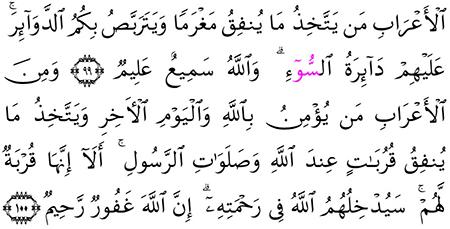 ٱلۡأَعۡرَابِ مَن يَتَّخِذُ مَا يُنفِقُ مَغۡرَمًا وَيَتَرَبَّصُ بِكُمُ ٱلدَّوَآئِرَۚ
عَلَيۡهِمۡ دَآئِرَةُ ٱلسُّوٓءِۗ وَٱللَّهُ سَمِيعٌ عَلِيمٌ ۝٩٩ وَمِنَ
ٱلۡأَعۡرَابِ مَن يُؤۡمِنُ بِٱللَّهِ وَٱلۡيَوۡمِ ٱلۡأٓخِرِ وَيَتَّخِذُ مَا
يُنفِقُ قُرُبَٰتٍ عِندَ ٱللَّهِ وَصَلَوَٰتِ ٱلرَّسُولِۚ أَلَآ إِنَّهَا قُرۡبَةٌ
لَّهُمۡۚ سَيُدۡخِلُهُمُ ٱللَّهُ فِي رَحۡمَتِهِۦٓۗ إِنَّ ٱللَّهَ غَفُورٌ رَّحِيمٌ ۝١٠٠